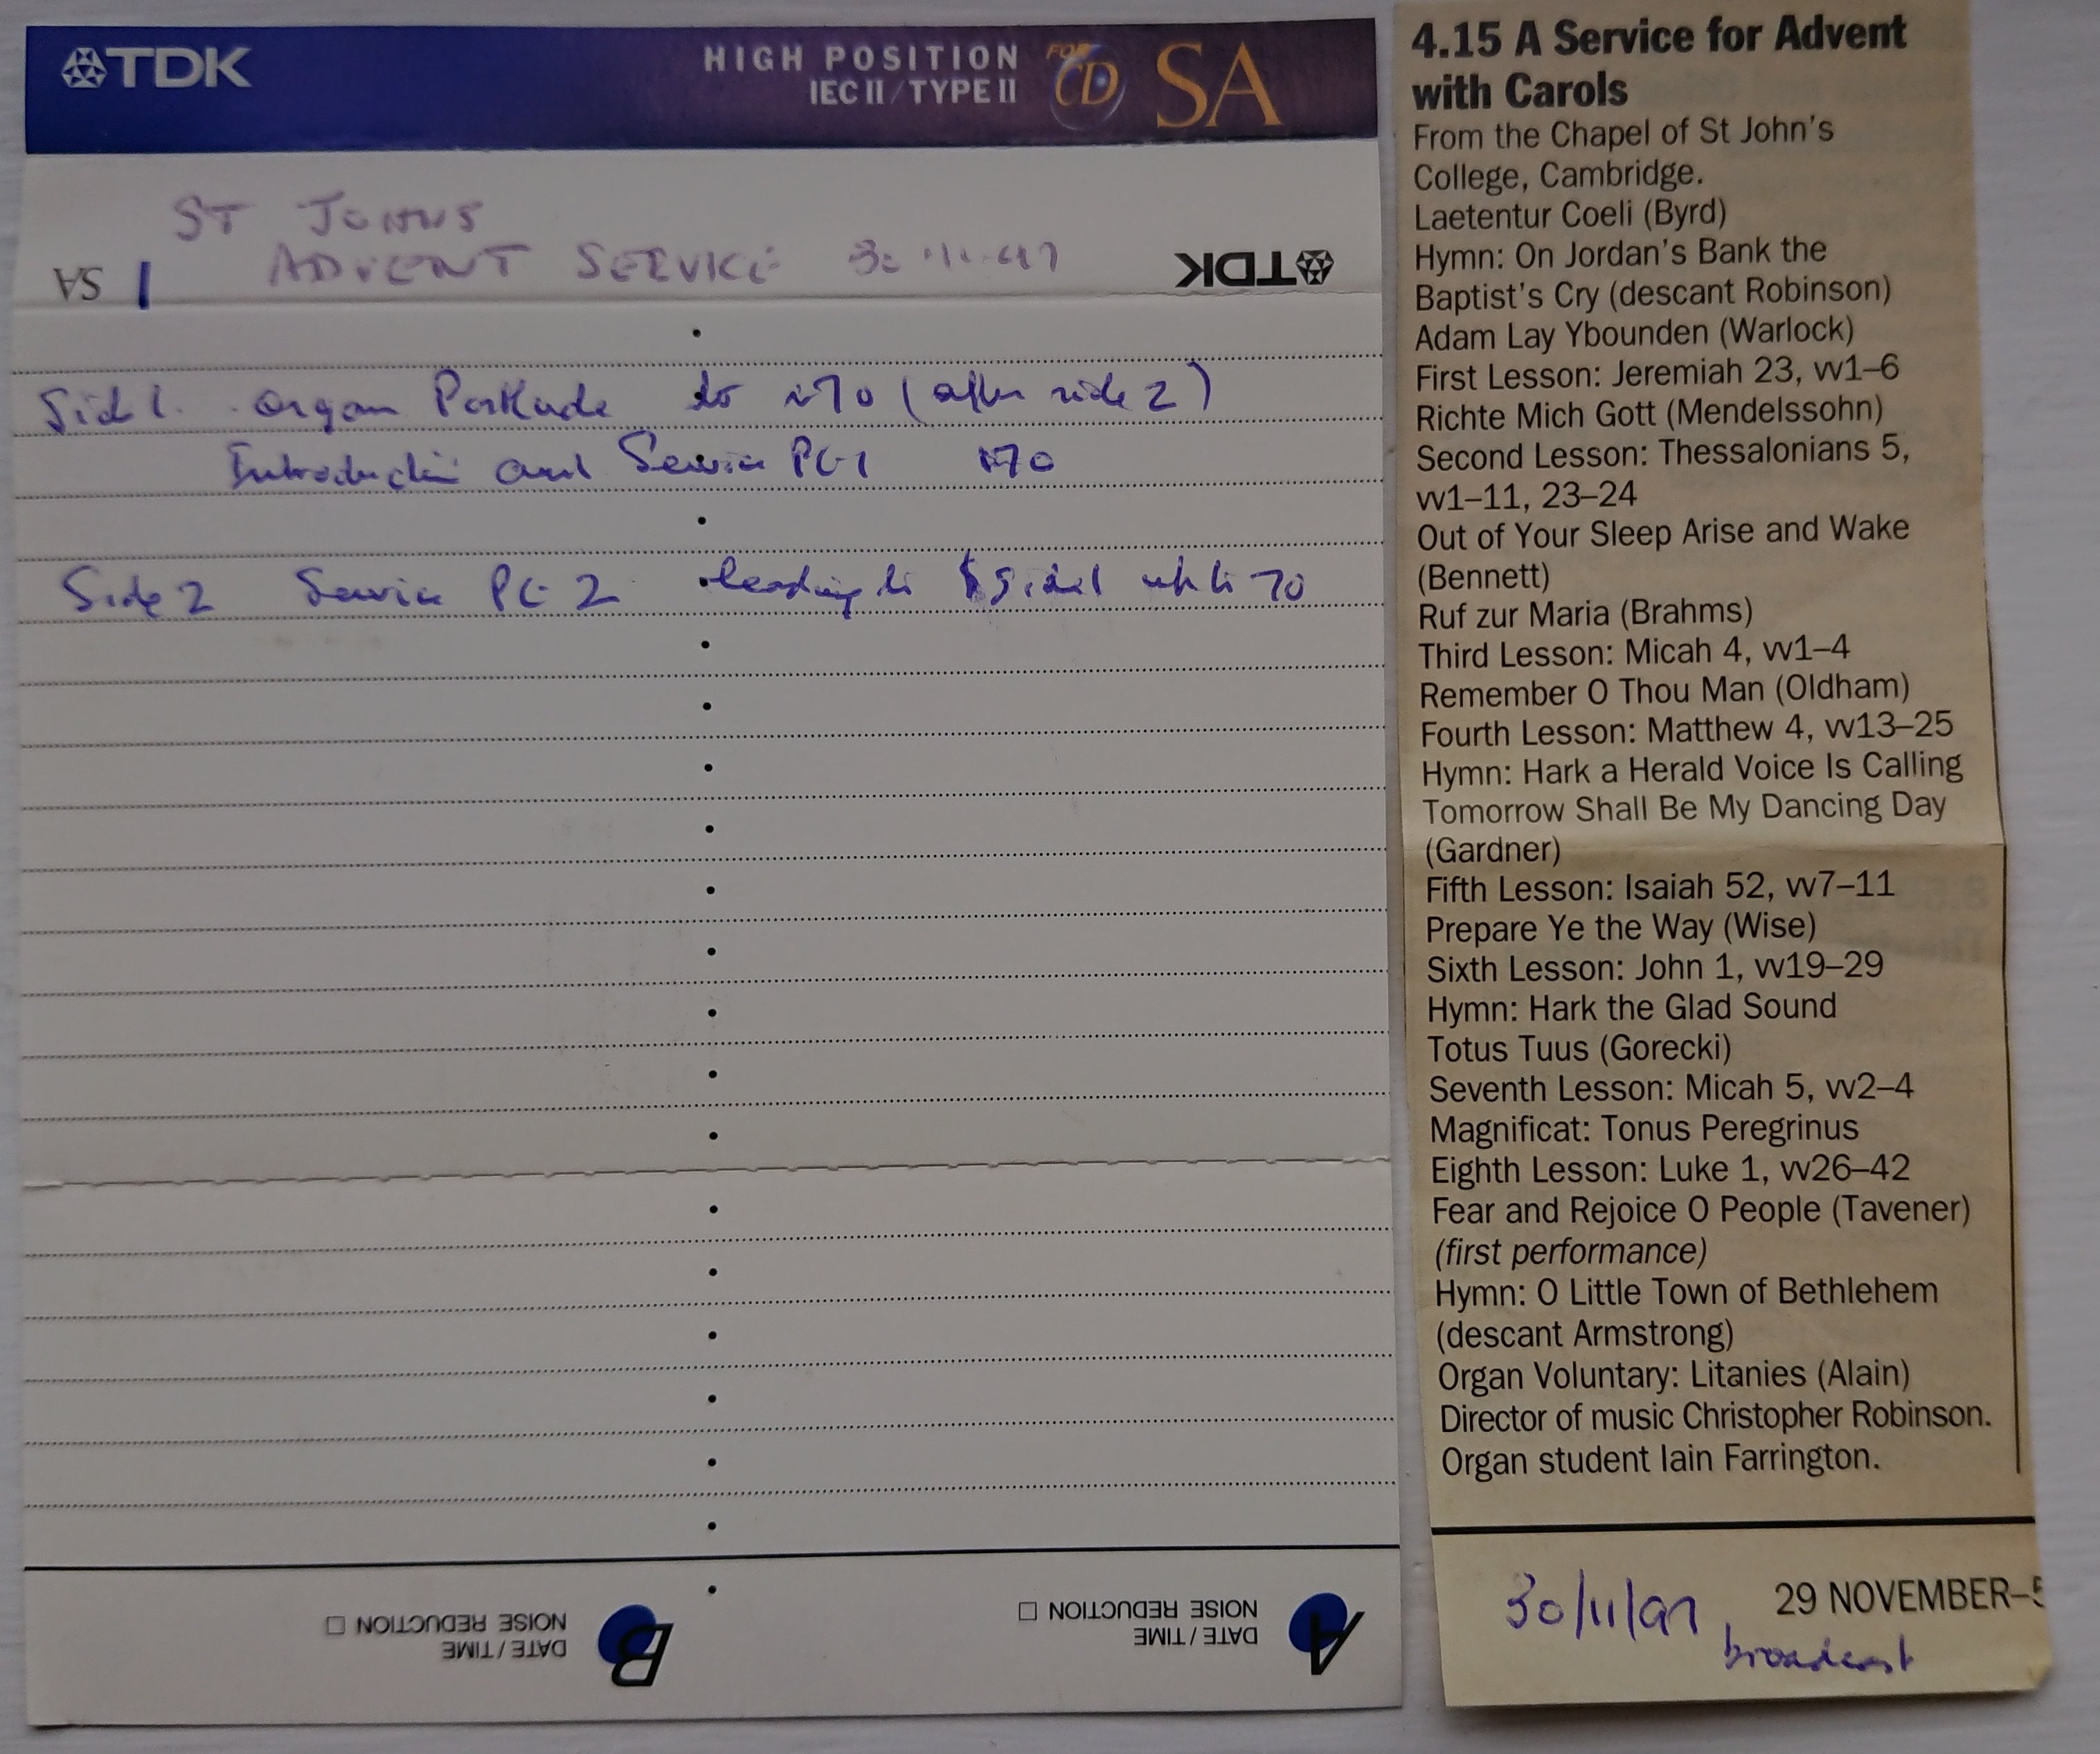 TDK
HIGH POSITION
IEC II / TYPE II
FOR CD SA
ST JOHNS
ADVENT SERVICE 30.11.97
SA 1
TDK
Side 1. Organ Postlude to 170 (after side 2)
Introduction and Service Pt 1 170
Side 2 Service Pt 2 leading to Side 1 up to 70
DATE / TIME
NOISE REDUCTION
B
DATE / TIME
NOISE REDUCTION
A
4.15 A Service for Advent
with Carols
From the Chapel of St John's
College, Cambridge.
Laetentur Coeli (Byrd)
Hymn: On Jordan's Bank the
Baptist's Cry (descant Robinson)
Adam Lay Ybounden (Warlock)
First Lesson: Jeremiah 23, vv1–6
Richte Mich Gott (Mendelssohn)
Second Lesson: Thessalonians 5,
vv1–11, 23–24
Out of Your Sleep Arise and Wake
(Bennett)
Ruf zur Maria (Brahms)
Third Lesson: Micah 4, vv1–4
Remember O Thou Man (Oldham)
Fourth Lesson: Matthew 4, vv13–25
Hymn: Hark a Herald Voice Is Calling
Tomorrow Shall Be My Dancing Day
(Gardner)
Fifth Lesson: Isaiah 52, vv7–11
Prepare Ye the Way (Wise)
Sixth Lesson: John 1, vv19–29
Hymn: Hark the Glad Sound
Totus Tuus (Gorecki)
Seventh Lesson: Micah 5, vv2–4
Magnificat: Tonus Peregrinus
Eighth Lesson: Luke 1, vv26–42
Fear and Rejoice O People (Tavener)
(first performance)
Hymn: O Little Town of Bethlehem
(descant Armstrong)
Organ Voluntary: Litanies (Alain)
Director of music Christopher Robinson.
Organ student Iain Farrington.
30/11/97 29 NOVEMBER–5
broadcast